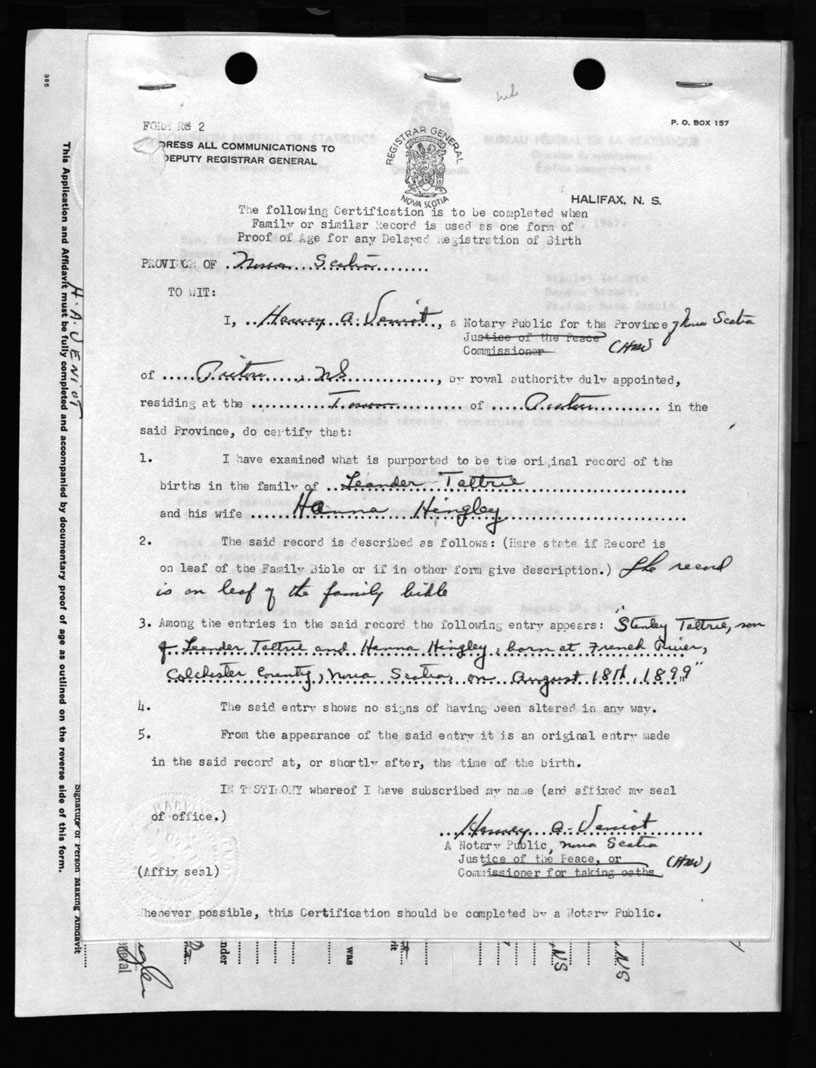 FORM RG 2
P. O. BOX 157
DRESS ALL COMMUNICATIONS TO
DEPUTY REGISTRAR GENERAL
REGISTRAR GENERAL
NOVA SCOTIA
HALIFAX, N. S.
The following Certification is to be completed when
Family or similar Record is used as one form of
Proof of Age for any Delayed Registration of Birth
PROVINCE OF Nova Scotia
TO WIT:
I, Harvey A. Veniot, a Notary Public for the Province of Nova Scotia
Justice of the Peace
Commissioner (HAV)
of Pictou, NS, by royal authority duly appointed,
residing at the Town of Pictou in the
said Province, do certify that:
1. I have examined what is purported to be the original record of the
births in the family of Leander Tattrie
and his wife Hanna Hingley
2. The said record is described as follows: (Here state if Record is
on leaf of the Family Bible or if in other form give description.) The record
is on leaf of the family bible
3. Among the entries in the said record the following entry appears: "Stanley Tattrie, son
of Leander Tattrie and Hanna Hingley, born at French River,
Colchester County, Nova Scotia, on August 18th, 1899"
4. The said entry shows no signs of having been altered in any way.
5. From the appearance of the said entry it is an original entry made
in the said record at, or shortly after, the time of the birth.
IN TESTIMONY whereof I have subscribed my name (and affixed my seal
of office.)
Harvey A. Veniot
A Notary Public, Nova Scotia
Justice of the Peace, or (HAV)
Commissioner for taking oaths
(Affix seal)
Whenever possible, this Certification should be completed by a Notary Public.
This Application and Affidavit must be fully completed and accompanied by documentary proof of age as outlined on the reverse side of this form.
H. A. VENIOT
Signature of Person Making Affidavit
eneral
nder
was
NS
NS